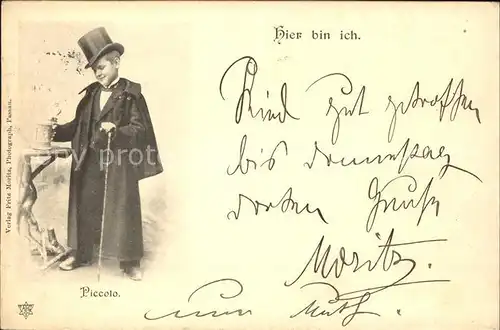 Hier bin ich.
Sind gut getroffen
bis Donnerstag
dorten Gruß
Moritz.
Piccolo.
Verlag Fritz Moritz, Photograph, Passau.